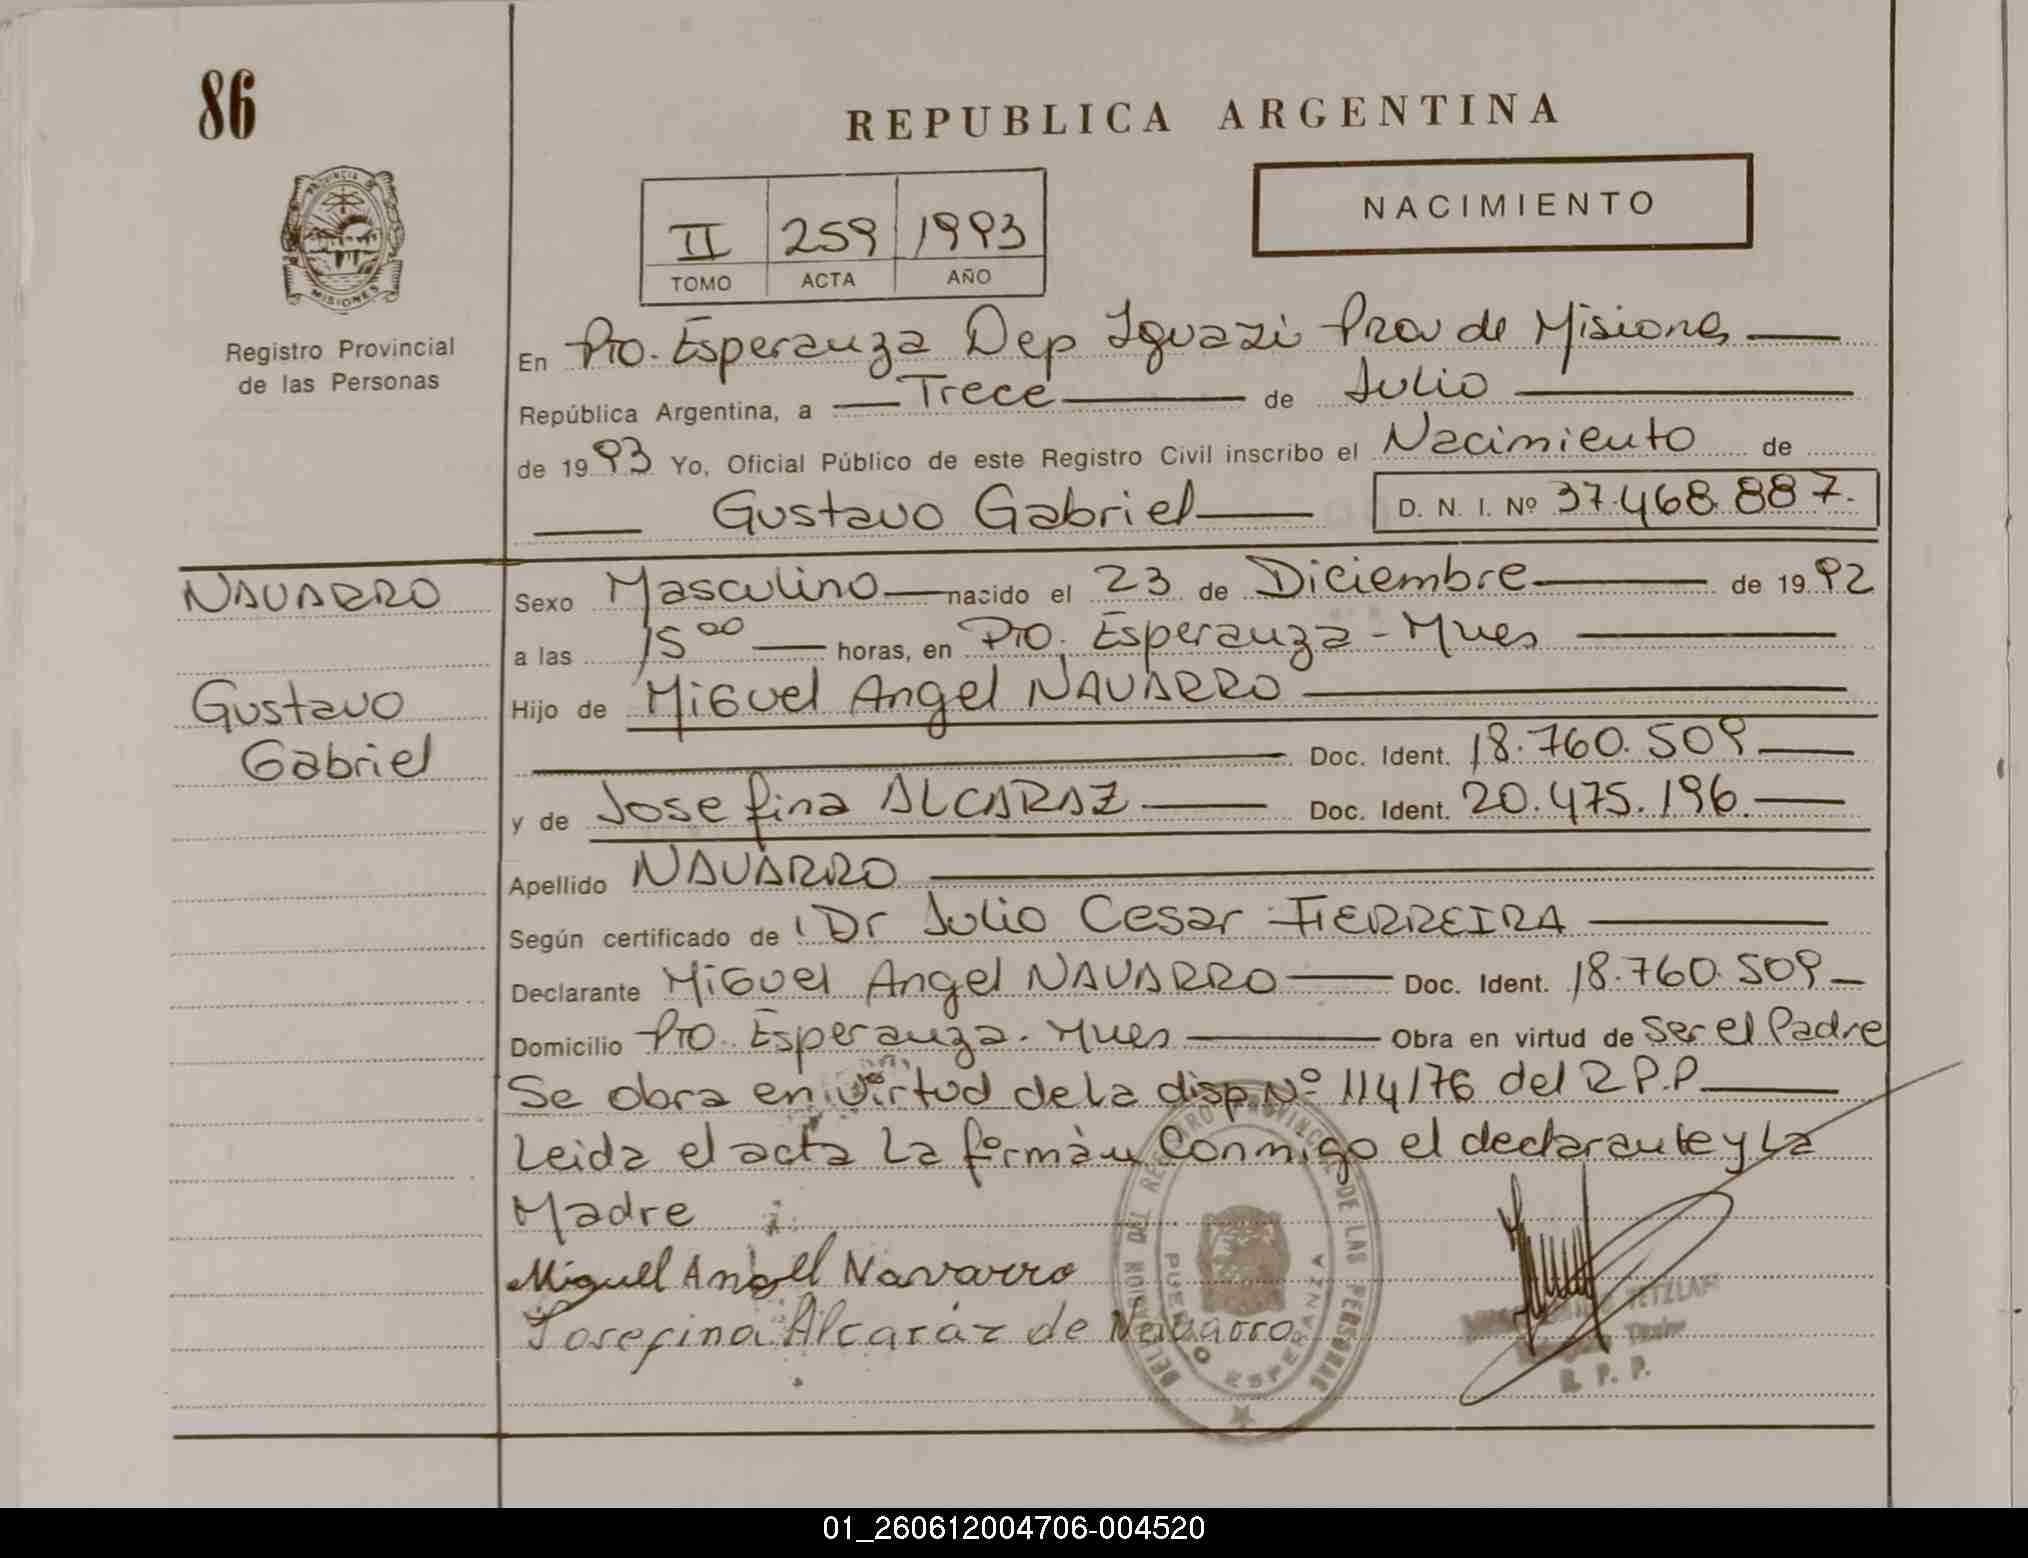 86
REPUBLICA ARGENTINA
PROVINCIA DE
MISIONES
Registro Provincial
de las Personas
II 259 1993
TOMO ACTA AÑO
NACIMIENTO
En Pto. Esperanza Dep Iguazú Prov de Misiones
República Argentina, a Trece de Julio
de 1993 Yo, Oficial Público de este Registro Civil inscribo el Nacimiento de
Gustavo Gabriel D. N. I. Nº 37.468.887.
NAVARRO
Gustavo
Gabriel
Sexo Masculino nacido el 23 de Diciembre de 1992
a las 15 00 horas, en Pto. Esperanza - Mnes
Hijo de Miguel Angel NAVARRO
Doc. Ident. 18.760.509
y de Josefina ALCARAZ Doc. Ident. 20.475.196.
Apellido NAVARRO
Según certificado de Dr Julio Cesar FIERREIRA
Declarante Miguel Angel NAVARRO Doc. Ident. 18.760.509
Domicilio Pto. Esperanza - Mnes Obra en virtud de Ser el Padre
Se obra en virtud de la disp Nº 114/76 del R P.P
Leida el acta La firmàn Conmigo el declarante y La
Madre
Miguel Angel Navarro
Josefina Alcaráz de Navarro
DEL REGISTRO PROVINCIAL DE LAS PERSONAS
PUERTO ESPERANZA
R. P. P.
01_260612004706-004520